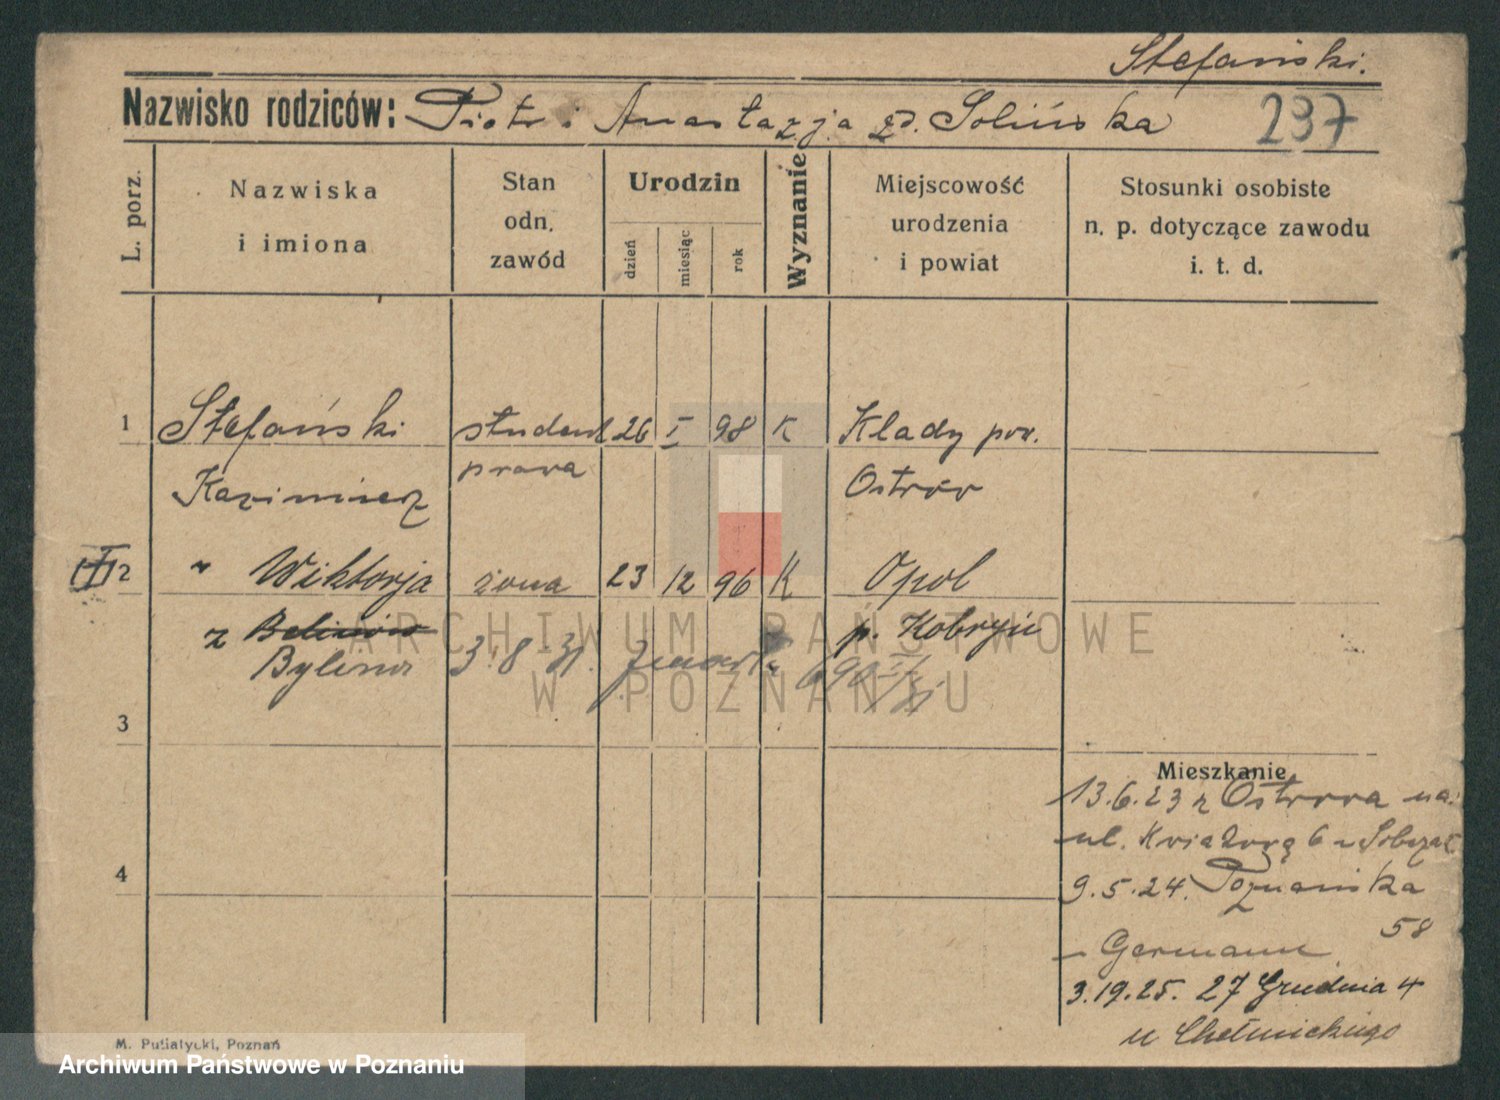 Stefański.
Nazwisko rodziców: Piotr i Anastazja zd. Solińska 237
L. porz.
Nazwiska
i imiona
Stan
odn.
zawód
Urodzin
dzień
miesiąc
rok
Wyznanie
Miejscowość
urodzenia
i powiat
Stosunki osobiste
n. p. dotyczące zawodu
i. t. d.
1 Stefański student 26 I 98 K Klady pow.
Kazimierz prawa Ostrów
2 " Wiktorja żona 23 12 96 K Opol
z p. Kobryń
Bylina 3.8 31.
3
4
Mieszkanie
13.6.23 z Ostrowa na
ul. 6
9.5.24. Poznańska
58
Germann
3.19.25. 27 Grudnia 4
u Chełmickiego
M. Putiatycki, Poznań
ARCHIWUM PAŃSTWOWE
W POZNANIU
Archiwum Państwowe w Poznaniu